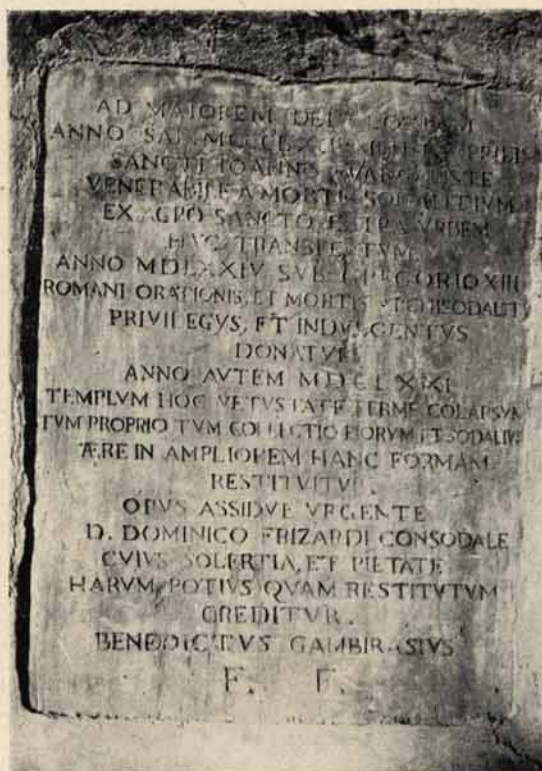 AD MAIOREM DEI
ANNO SAL
SANCTI IOANNIS
VENERABILE A MORTE SODALITIVM
EX AGRO SANCTO EXTRA VRBEM
HVC TRANSLATVM
ANNO MDLXXIV SVB GREGORIO XIII
ROMANI ORATIONIS, ET MORTIS
PRIVILEGVS, ET INDVLGENTVS
DONATVR
ANNO AVTEM
TEMPLVM HOC VETVSTATE FERME COLAPSVM
TVM PROPRIO TVM COLLECTIO PIORVM ET SODALIVM
ÆRE IN AMPLIOREM HANC FORMAM
RESTITVITVR
OPVS ASSIDVE VRGENTE
D. DOMINICO FRIZARDI CONSODALE
CVIVS SOLERTIA, ET PIETATE
HARVM POTIVS QVAM RESTITVTVM
CREDITVR.
BENEDICTVS GAMBIRASIVS
F. F.